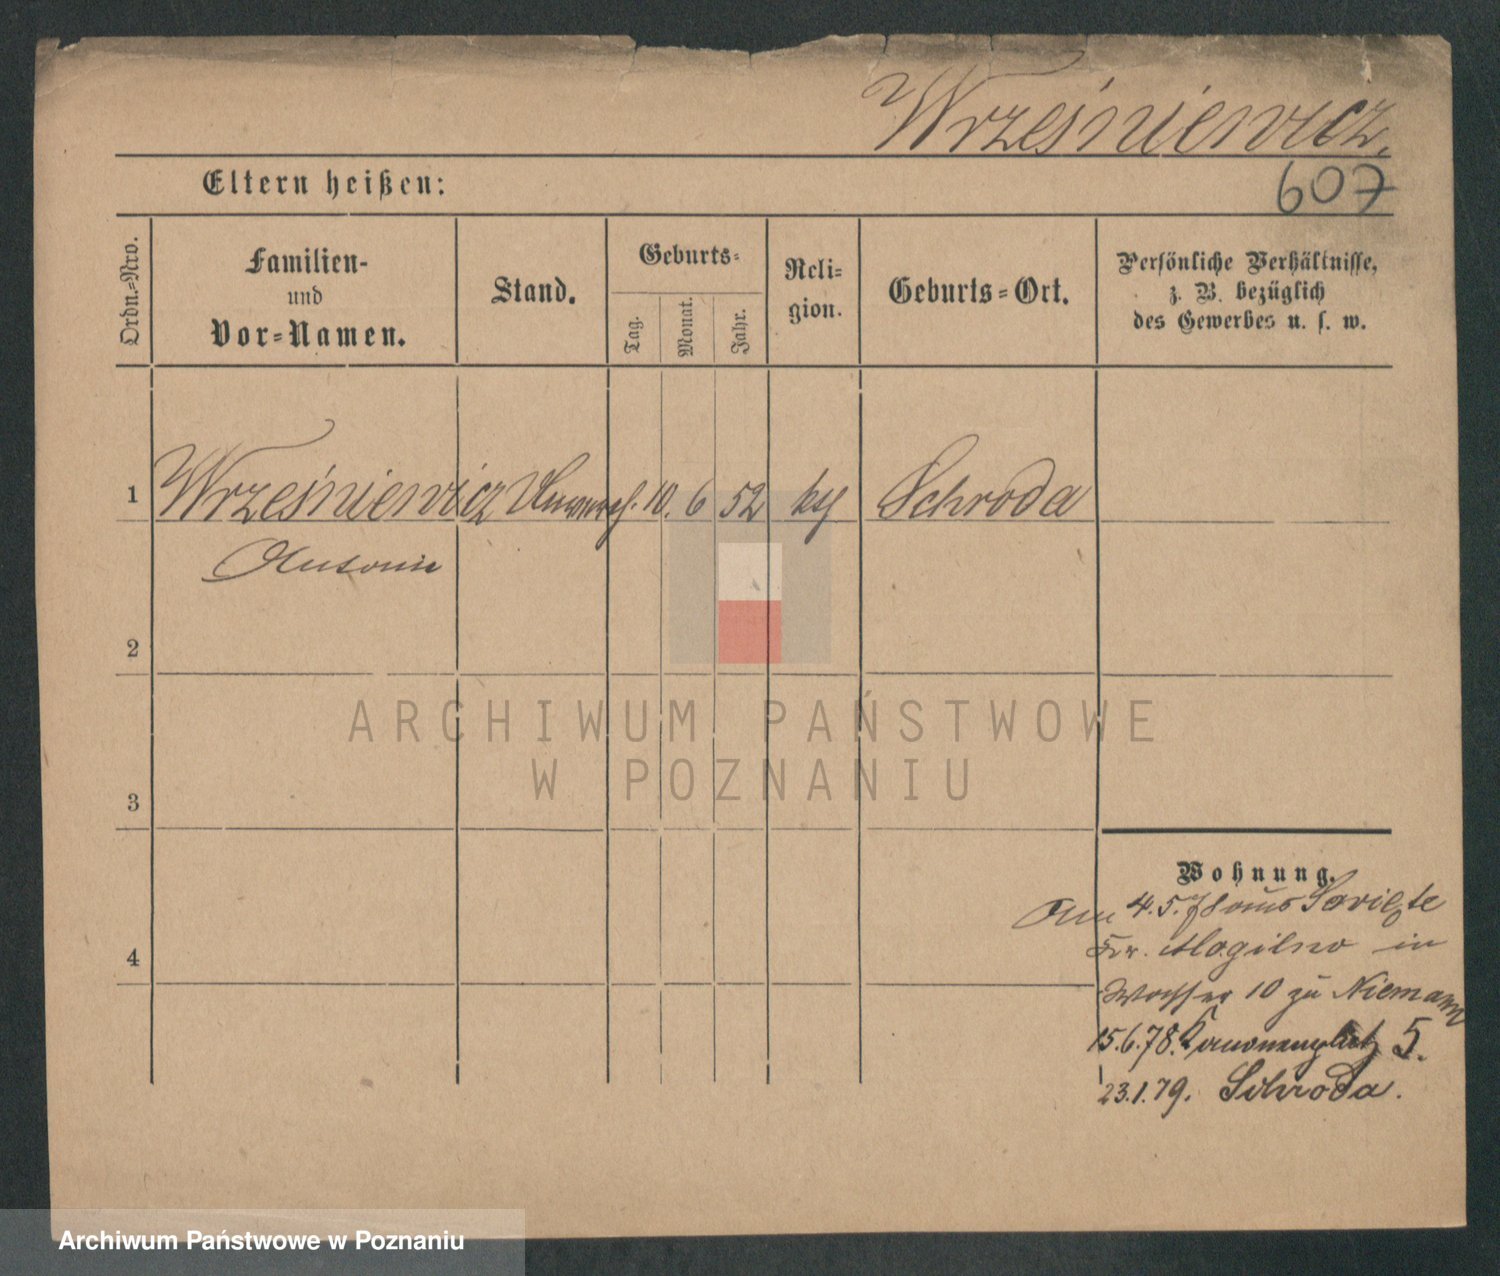 Wrześniewicz.
Eltern heißen:
607
Ordn.-Nro.
Familien-
und
Vor-Namen.
Stand.
Geburts-
Tag.
Monat.
Jahr.
Reli-
gion.
Geburts-Ort.
Persönliche Verhältnisse,
z. B. bezüglich
des Gewerbes u. s. w.
1 Wrześniewicz 10. 6 52 Schroda
Antonie
2
ARCHIWUM PAŃSTWOWE
W POZNANIU
3
Wohnung.
4.5.78 aus
4
Kr. Mogilno in
10 zu Niemann
15.6.78. Kanonenplatz 5.
23.1.79. Schroda.
Archiwum Państwowe w Poznaniu